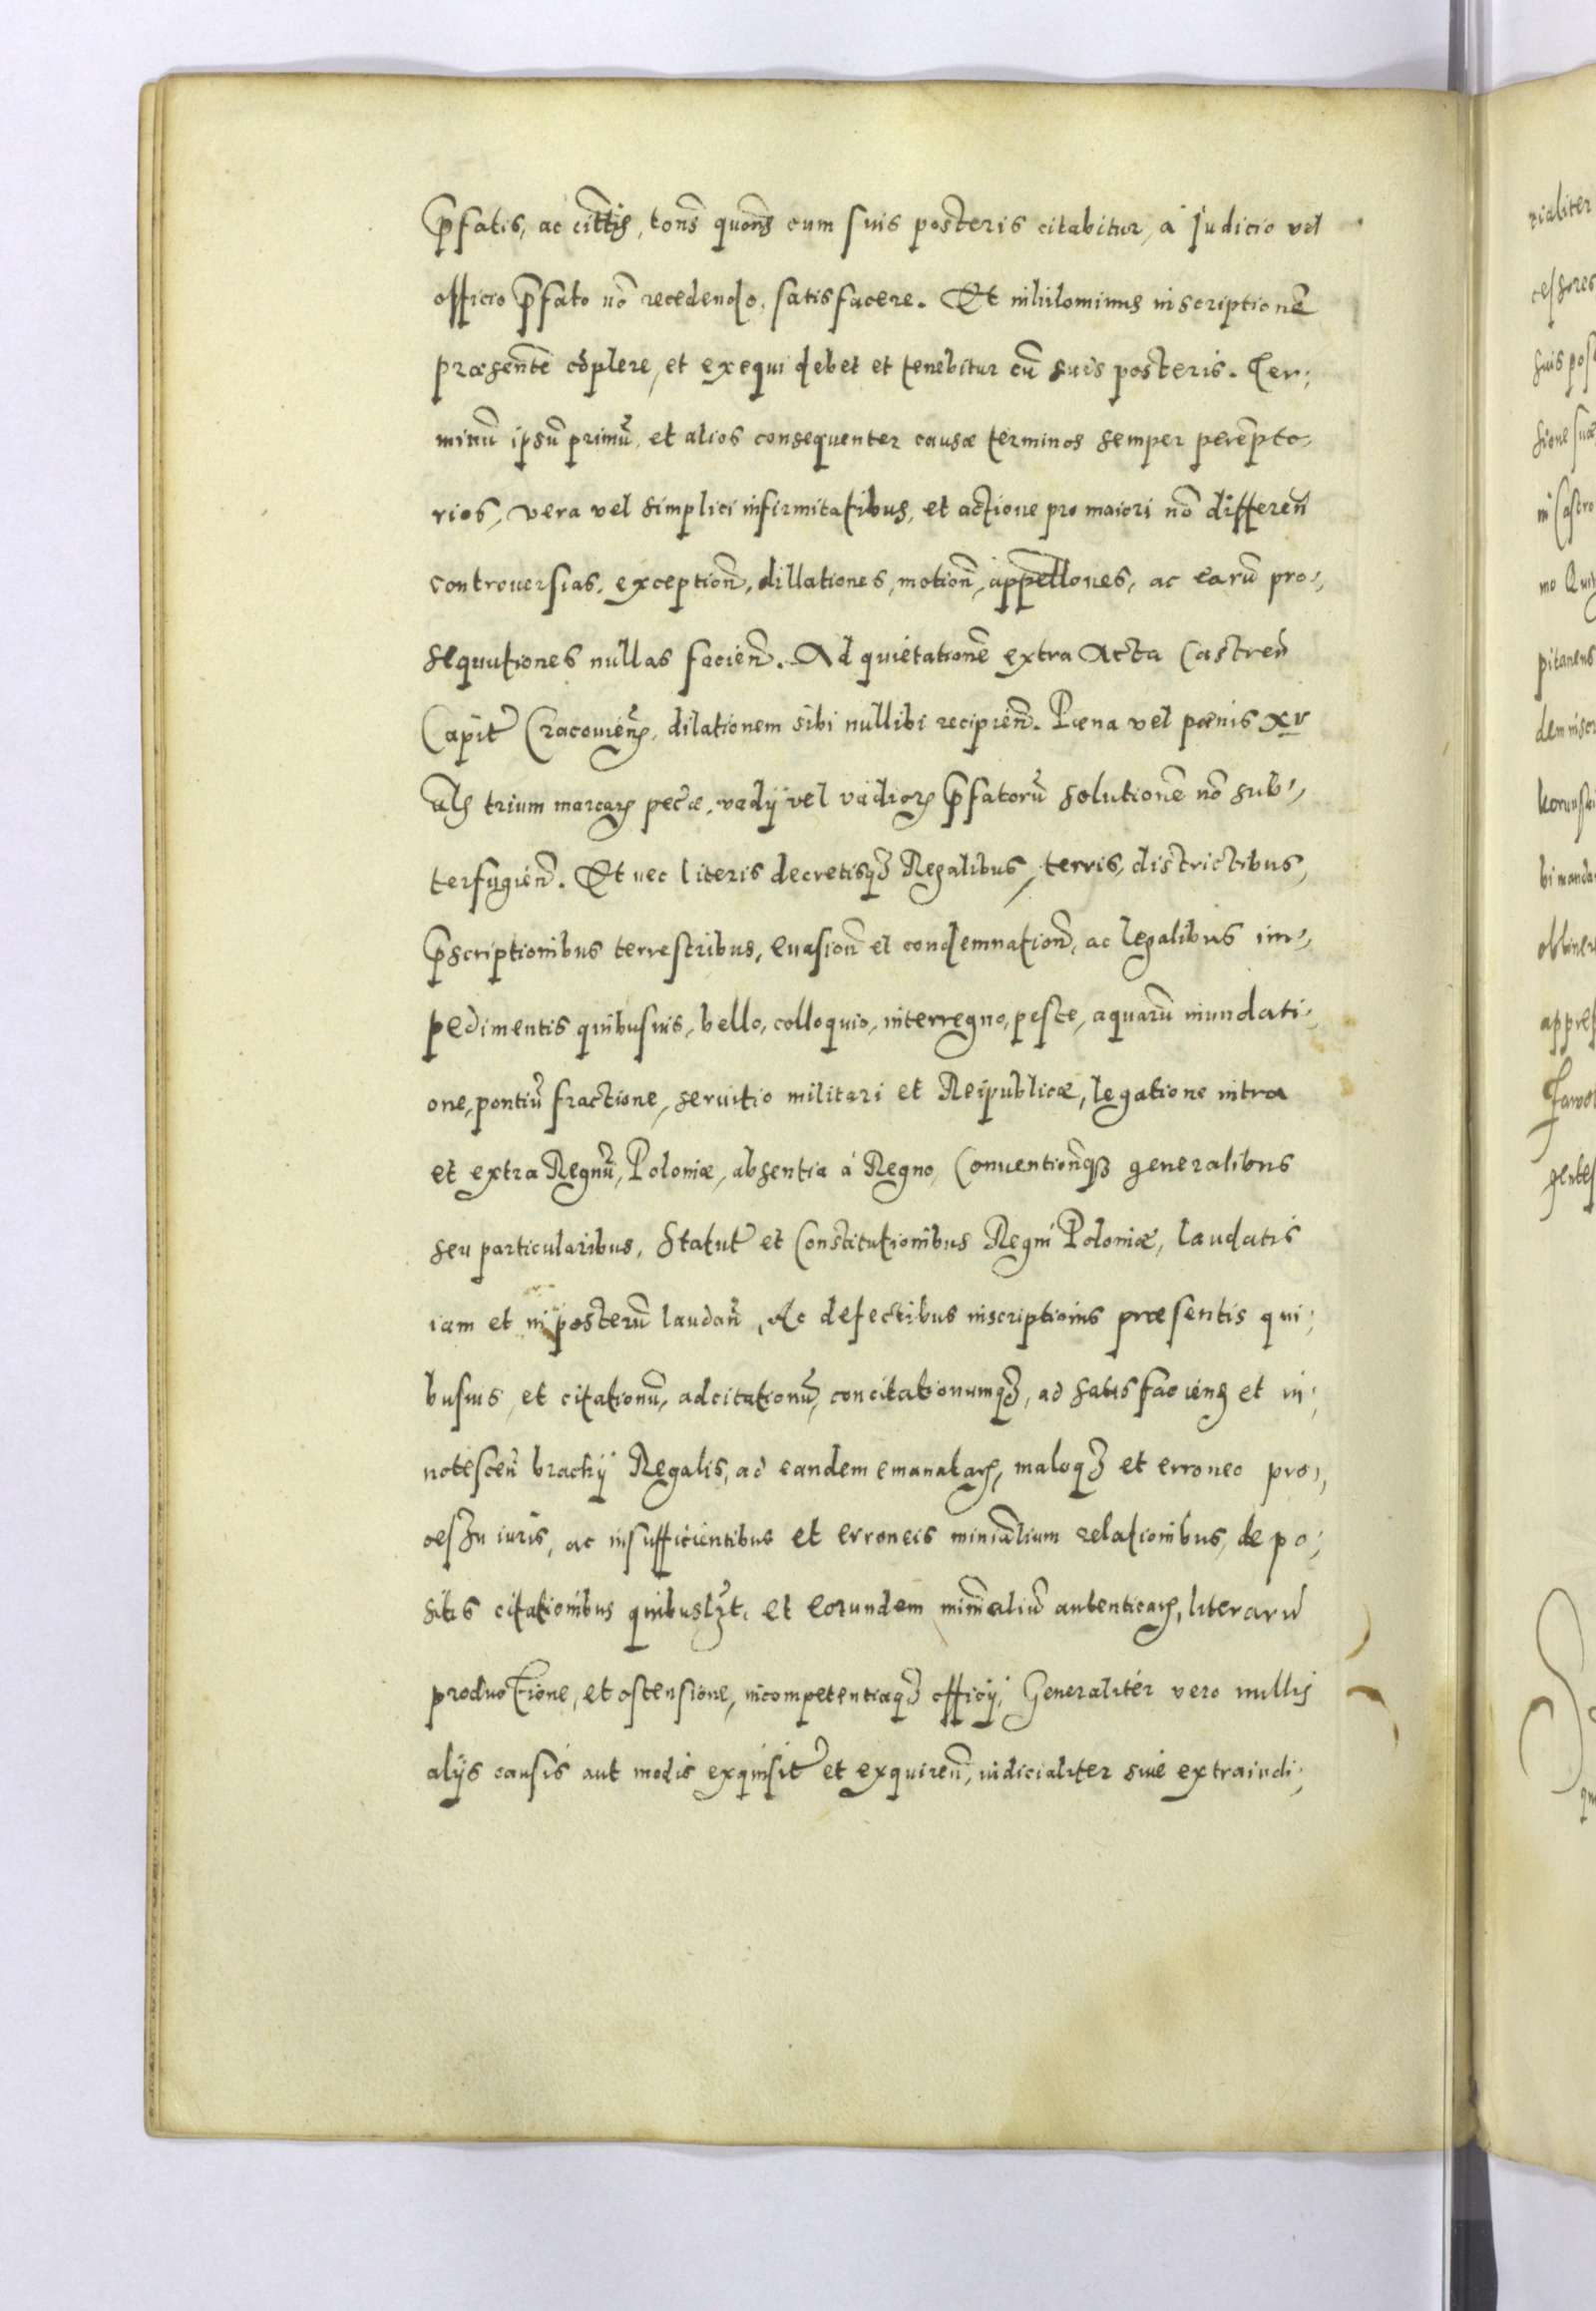 p̄fatis, ac cittis, tons̄ quons̄ cum suis posteris citabitur, à Judicio vel
officio p̄fato nō recedendo, satisfacere. Et nihilominus inscriptionē
præsentē cōplere, et exequi debet et tenebitur cū suis posteris. Ter;
minū ipsū primū, et alios consequenter causæ terminos semper perēpto;
rios, vera vel simplici infirmitatibus, et actione pro maiori nō differen̄
controuersias, exception̄, dillationes, motion̄, appellones, ac earū pro;
sequutiones nullas facien̄. Ad quietationē extra Acta Castren̄
Capit̄ Cracouien̄, dilationem sibi nullibi recipien̄. Pæna vel pænis xv
als trium marcarꝝ pecæ, vadij vel vadiorꝝ p̄fatorū solutionē nō sub;
terfugien̄. Et nec literis decretisqꝫ Regalibus, terris, districtibus,
p̄scriptionibus terrestribus, euasion̄ et condemnation̄, ac legalibus im;
pedimentis quibusuis, bello, colloquio, interregno, peste, aquarū inundati;
one, pontiū fractione, seruitio militari et Reipublicæ, legatione intra
et extra Regnū Poloniæ, absentia á Regno, Conuention̄qꝫ generalibus
seu particularibus, Statut̄ et Constitutionibus Regni Poloniæ, laudatis
iam et in posterū laudan̄, Ac defectibus inscriptionis præsentis qui;
busuis, et citationū, adcitationū, concitationumqꝫ, ad satisfaciens et in;
notescen̄ brachij Regalis, ad eandem emanatarꝝ, maloqꝫ et erroneo pro;
cessu iuris, ac insufficientibus et erroneis ministalium relationibus, de po;
sitis citationibus quibuslꝫt, et eorundem minn̄alium autenticarꝝ, literarū
productione, et ostensione, incompetentiaqꝫ officij, Generaliter vero nullis
alijs causis aut modis exquisit̄ et exquiren̄, iudicialiter siue extraiudi;